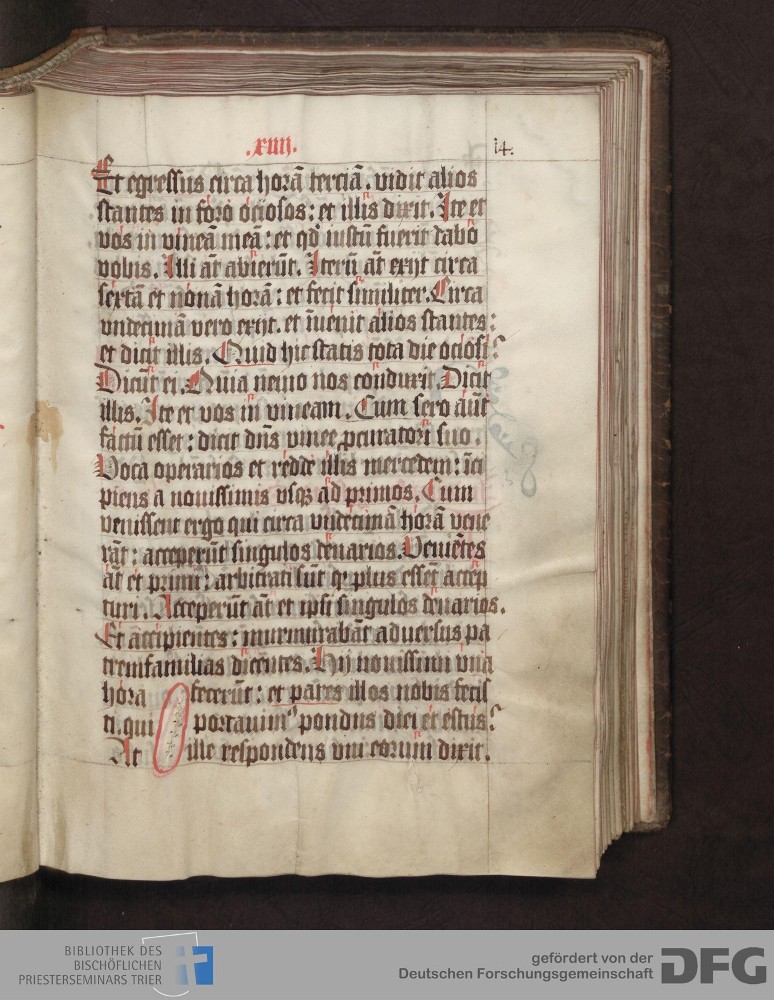 .xiiij.
14.
Et egressus circa horā terciā. vidit alios
stantes in foro ociosos: et illis dixit. Ite et
vos in vineā meā: et qd iustū fuerit dabo
vobis. Illi aūt abierūt. Iterū aūt exijt circa
sextā et nonā horā: et fecit similiter. Circa
vndecimā vero exijt. et īuenit alios stantes:
et dicit illis. Quid hic statis tota die ociosi?
Dicūt ei. Quia nemo nos cōduxit. Dicit
illis. Ite et vos in vineam. Cum sero aūt
factū esset: dicit dn̄s vinee ꝓcuratori suo.
Voca operarios et redde illis mercedem: īci
piens a nouissimis vsqꝫ ad primos. Cum
venissent ergo qui circa vndecimā horā vene
rāt: acceperūt singulos denarios. Veniētes
āt et primi: arbitrati sūt ꝙ plus essēt accep
turi. Acceperūt āt et ipsi singulos denarios.
Et accipientes: murmurabāt aduersus pa
tremfamilias dicentes. Hij nouissimi vna
hora fecerūt: et pares illos nobis fecis
ti. qui portauimꝰ pondus diei et estus?
At ille respondens vni eorum dixit.
BIBLIOTHEK DES
BISCHÖFLICHEN
PRIESTERSEMINARS TRIER
gefördert von der
Deutschen Forschungsgemeinschaft
DFG